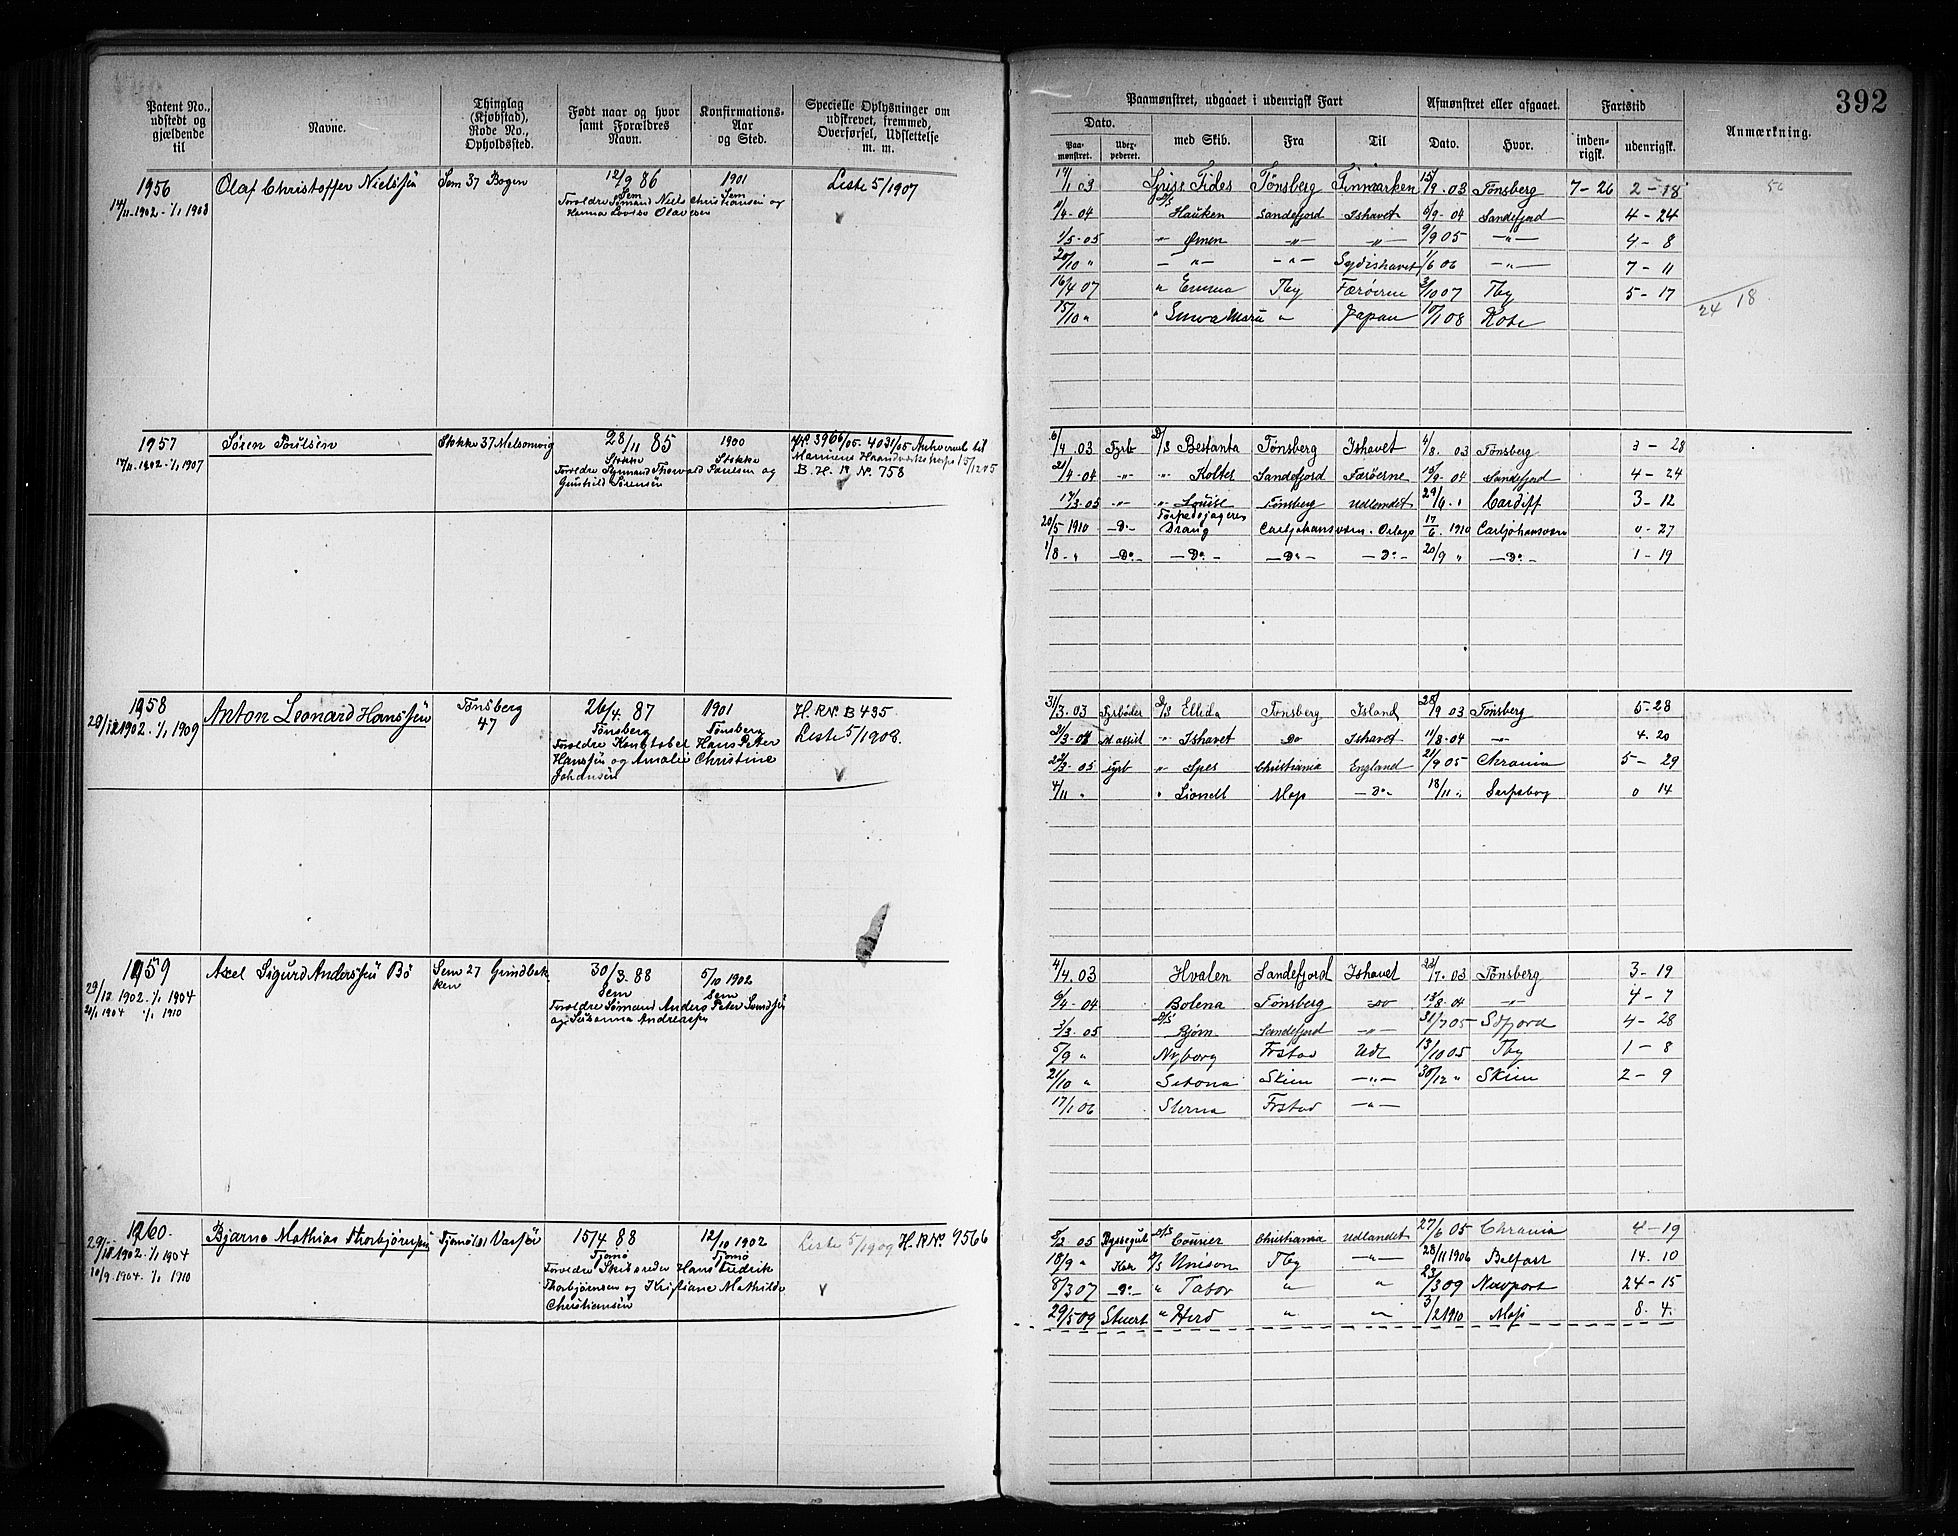 392
Patent No., udstedt og gjældende til
Navne.
Thinglag (Kjøbstad), Rode No., Opholdssted.
Født naar og hvor samt Forældres Navn.
Konfirmations-Aar og Sted.
Specielle Oplysninger om udskrevet, fremmed, Overførsel, Udslettelse m. m.
Paamønstret, udgaaet i udenrigsk Fart
Afmønstret eller afgaaet.
Fartstid
Anmærkning.
Dato.
Paa-mønstret.
med Skib.
Fra
Til
Dato.
Hvor.
inden-rigsk.
udenrigsk.
1956 Olaf Christoffer Nielsen Sem 37 Bogen 12/9 86 1901 Leste 5/1907
14/11-1902-1/1 1908 Sem Sem
Foreldre Sømand Niels Christiansen og
Hanna Lovise Olavesen
Fides Tønsberg Finmarken 15/9 03 Tønsberg 7-26 2-18 56
4-04 D/S Hauken Sandefjord Ishavet 6/9-04 Sandefjord 4-24
1/5-05 " Ørnen -"- -"- 9/9 05 -"- 4-8
20/10 " -"- -"- Sydishavet 1/6 06 -"- 7-11
16/4 07 " Emma Tbg Færøerne 3/10 07 Tbg 5-17
24 18
15/10 " " Maru " Japan 10/1 08 Kobe
1957 Søren Poulsen Stokke 37 Melsomvig 28/11 85 1900
14/11-1902-1/1 1907 Stokke Stokke
Foreldre Sømand Thorvald Paulsen og
Gunhild Sørensen
B. H. R No. 758
6/4 03 Fyrb D/S Bestanta Tønsberg Ishavet 4/8 03 Tønsberg 3-28
21/4-04 -"- " Kolter Sandefjord Færøerne 15/9-04 Sandefjord 4-24
17/3-05 -"- " Louise Tønsberg Udlandet 29/6 " Cardiff 3-12
20/5 1910 -Do- Torpedojageren Draug Carljohansværn Orlogs 17/6 1910 Carljohansværn 0-27
1/8 - " -Do- -Do- -Do- -Do- 20/9 " -Do- 1-19
1958 Anton Leonard Hanssen Tønsberg 47 26/4 87 1901 H. R No. B 435
29/12 1902-1/1 1909 Tønsberg Tønsberg Leste 5/1908.
Foreldre Konstabel Hans Peter
Hanssen og Amalie Christine
Johansen
31/3-03 Fyrbøder D/S Ellida Tønsberg Island 28/9 03 Tønsberg 5-28
21/3-04 M assist " Ishavet Do Ishavet 11/8-04 -"- 4-20
22/3-05 Fyrb " Spes Christiania England 21/9 05 Chrania 5-29
4/11 " " Lionell Moss -Do- 18/11 " Sarpsborg 0 14
1959 Axel Sigurd Anderssen Bø Sem 27 Grindbakken 30/3 88 5/10 1902
29/12 1902-1/1 1904 Sem Sem
20/1 1904 1/1 1910 Foreldre Sømand Anders Peter
og Susanna
4/4.03 Hvalen Sandefjord Ishavet 23/7-03 Tønsberg 3-19
6/4-04 Bolena Tønsberg -"- 13/8-04 -"- 4-7
3/3-05 D/S Bjørn Sandefjord -"- 31/7 05 Sdfjord 4-28
5/9 " Nyborg Frstad Udl 13/10 05 Tbg 1-8
21/10 " Setona Skien -"- 30/12 " Skien 2-9
17/1 06 Sterna Frstad -"-
1960. Bjarne Mathias Thorbjørnsen Tjømø 15/4 88 12/10 1902 Leste 5/1909 H. R No. 9566
29/12 1902-1/1 1904 Tjømø Tjømø
10/9-1904-1/1 1910 Foreldre Skibsreder Hans Fredrik
Thorbjørnsen og Kristiane Mathilde
Christiansen
5/2 05 Dyssegut D/S Courier Christiania Udlandet 27/6 05 Chrania 4-19
18/9 " Kok D/S Unison Tbg -"- 28/11 1906 Belfast 14-10
8/3 07 -Do- " Tabor " " 23/3 09 Newport 24-15
29/5 09 Stuert " Herd " " 3/2 1910 Moss 8-4.